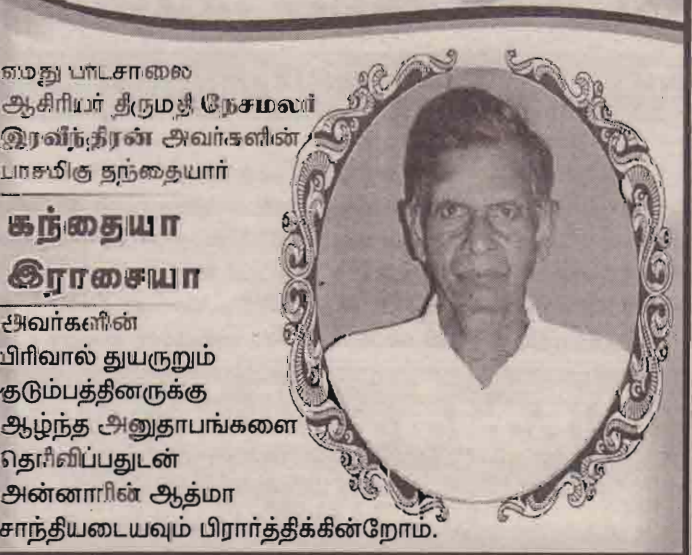 எமது பாடசாலை
ஆசிரியர் திருமதி நேசமலர்
இரவீந்திரன் அவர்களின்
பாசமிகு தந்தையார்
கந்தையா
இராசையா
அவர்களின்
பிரிவால் துயருறும்
குடும்பத்தினருக்கு
ஆழ்ந்த அனுதாபங்களை
தெரிவிப்பதுடன்
அன்னாரின் ஆத்மா
சாந்தியடையவும் பிரார்த்திக்கின்றோம்.